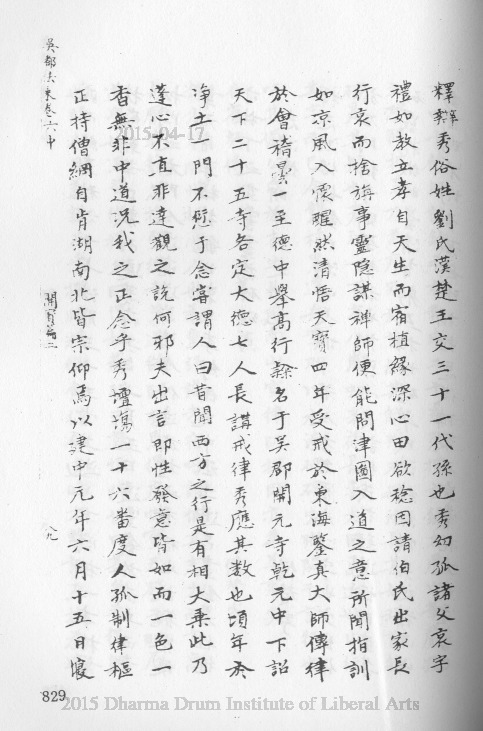 釋辯秀俗姓劉氏漢楚王交三十一代孫也秀幼孤諸父哀字
禮如教立孝自天生而宿植緣深心田欲稔因請伯氏出家長
行哀而捨旃事靈隱謀禪師便能問津圖入道之意所聞指訓
如凉風入懷醒然清悟天寶四年受戒於東海鑒真大師傳律
於會稽曇一至德中舉高行隸名于吳郡開元寺乾元中下詔
天下二十五寺各定大德七人長講戒律秀應其數也頃年於
淨土一門不愆于念嘗謂人曰昔聞西方之行是有相大乘此乃
蓬心不直非達觀之說何邪夫出言即性發意皆如而一色一
香無非中道況我之正念乎秀壇場一十六番度人孤制律樞
正持僧綱自肯湖南北皆宗仰焉以建中元年六月十五日寢
吳都法乘卷六中
開育篇二
八九
829
2015-04-17
2015 Dharma Drum Institute of Liberal Arts